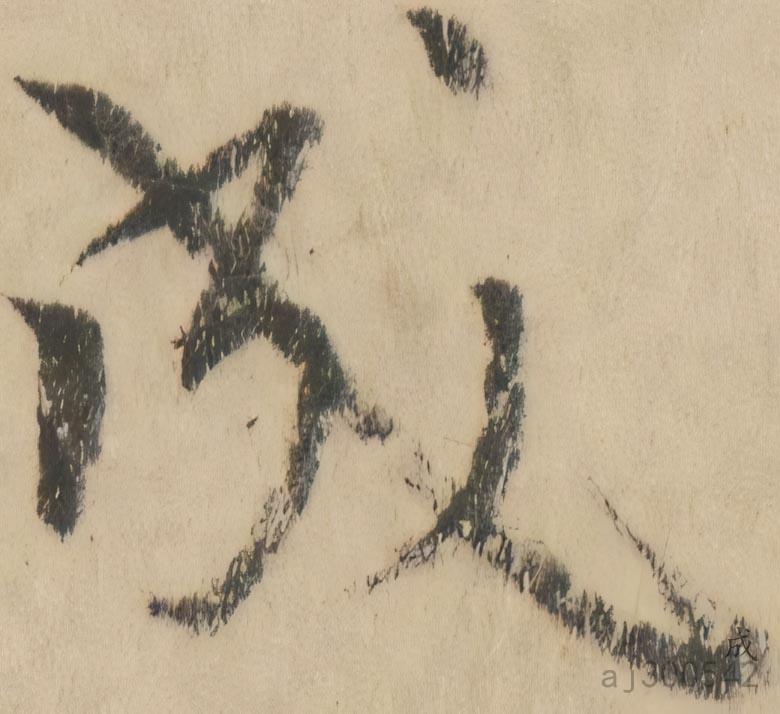 成
成
aj300542